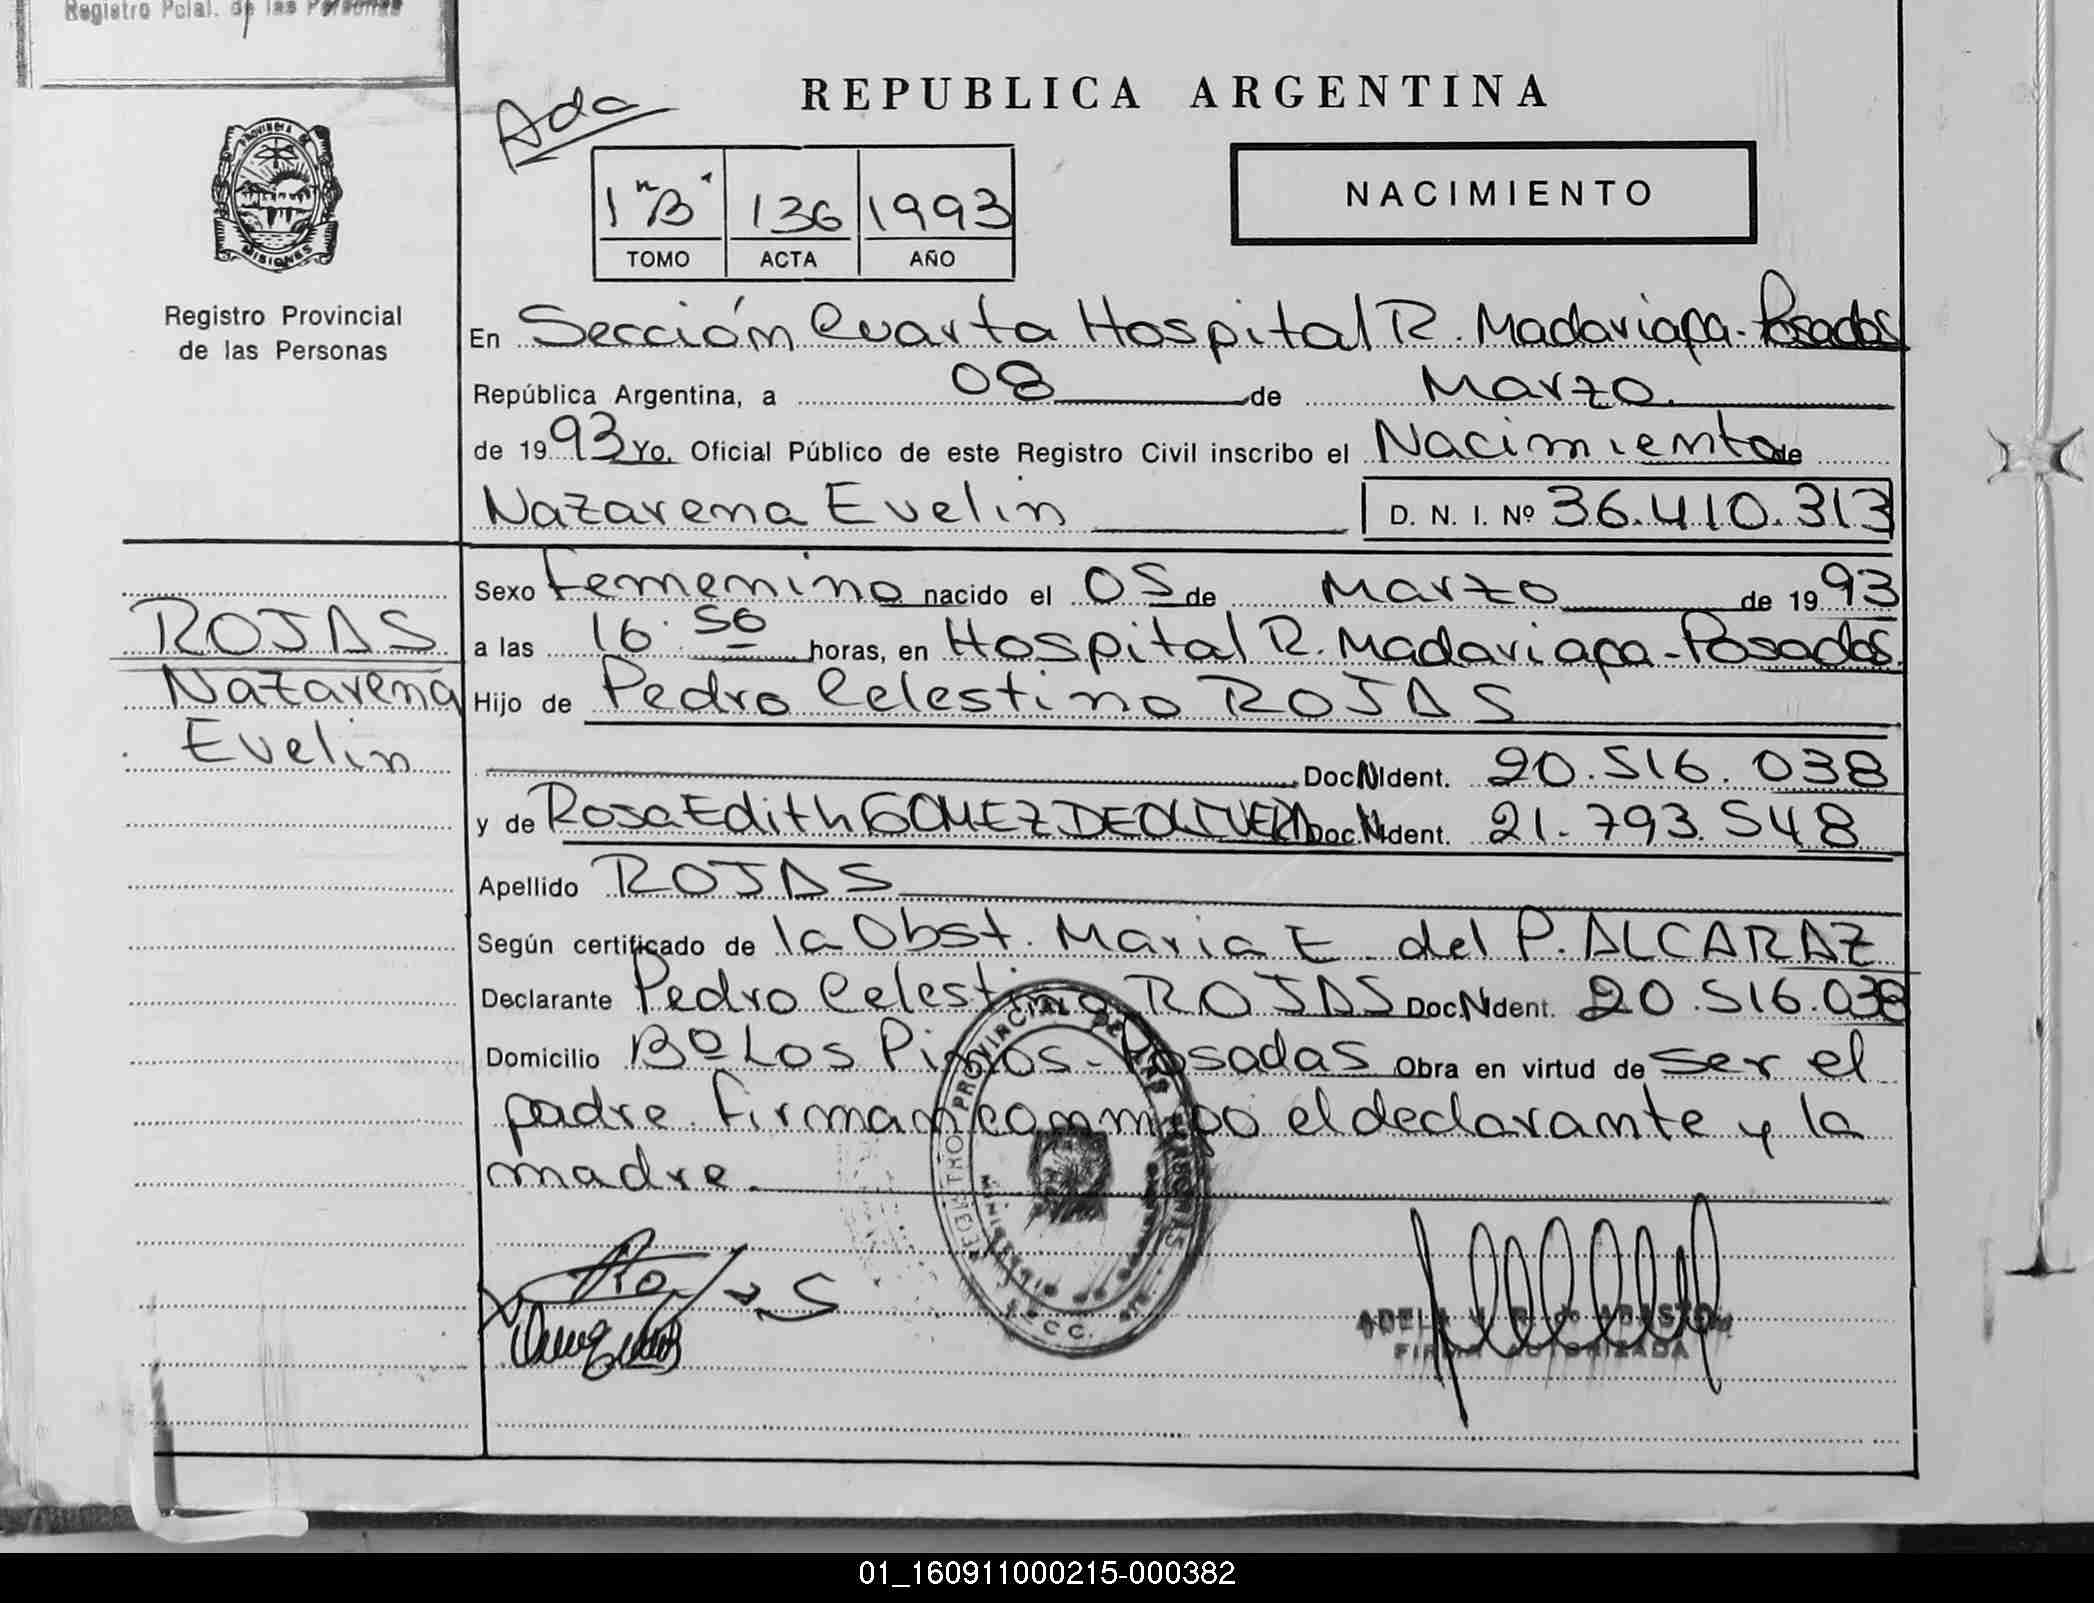 Registro Pcial. de las Personas
REPUBLICA ARGENTINA
Ada
NACIMIENTO
1 "B" 136 1993
TOMO ACTA AÑO
PROVINCIA DE
MISIONES
Registro Provincial
de las Personas
En Sección Cuarta Hospital R. Madariaga-Posadas
República Argentina, a 08 de Marzo
de 1993 Yo, Oficial Público de este Registro Civil inscribo el Nacimiento de
Nazarena Evelin D. N. I. Nº 36.410.313
Sexo Femenino nacido el 05 de Marzo de 1993
a las 16.56 horas, en Hospital R. Madariaga-Posadas.
Hijo de Pedro Celestino ROJAS
Doc. N Ident. 20.516.038
y de Rosa Edith GOMEZ DE OLIVERA Doc. N Ident. 21.793.548
Apellido ROJAS
Según certificado de la Obst. Maria E. del P. ALCARAZ
Declarante Pedro Celestino ROJAS Doc. N Ident. 20.516.038
Domicilio Bº Los Pinos-Posadas Obra en virtud de ser el
padre. Firman conmigo el declarante y la
madre.
ROJAS
Nazarena
Evelin
REGISTRO PROVINCIAL DE LAS PERSONAS
ADELA V. R. de ABASTO
FIRMA AUTORIZADA
01_160911000215-000382